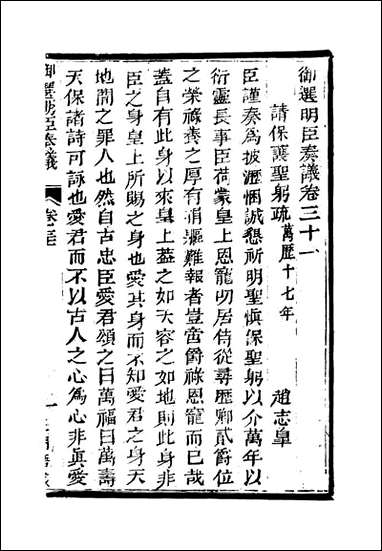 御選明臣奏議卷三十一
請保護聖躬疏萬歷十七年
趙志皐
臣謹奏為披瀝悃誠懇祈明聖慎保聖躬以介萬年以
衍靈長事臣荷蒙皇上恩寵叨居侍從尋歷卿貳爵位
之榮祿養之厚有捐軀難報者豈當爵祿恩寵而已哉
蓋自有此身以來皇上蓋之如天容之如地則此身非
臣之身皇上所賜之身也愛其身而不知愛君之身天
地間之罪人也然自古忠臣愛君頌之曰萬福曰萬壽
天保諸詩可詠也愛君而不以古人之心為心非真愛
御選明臣奏議
卷三十一
一